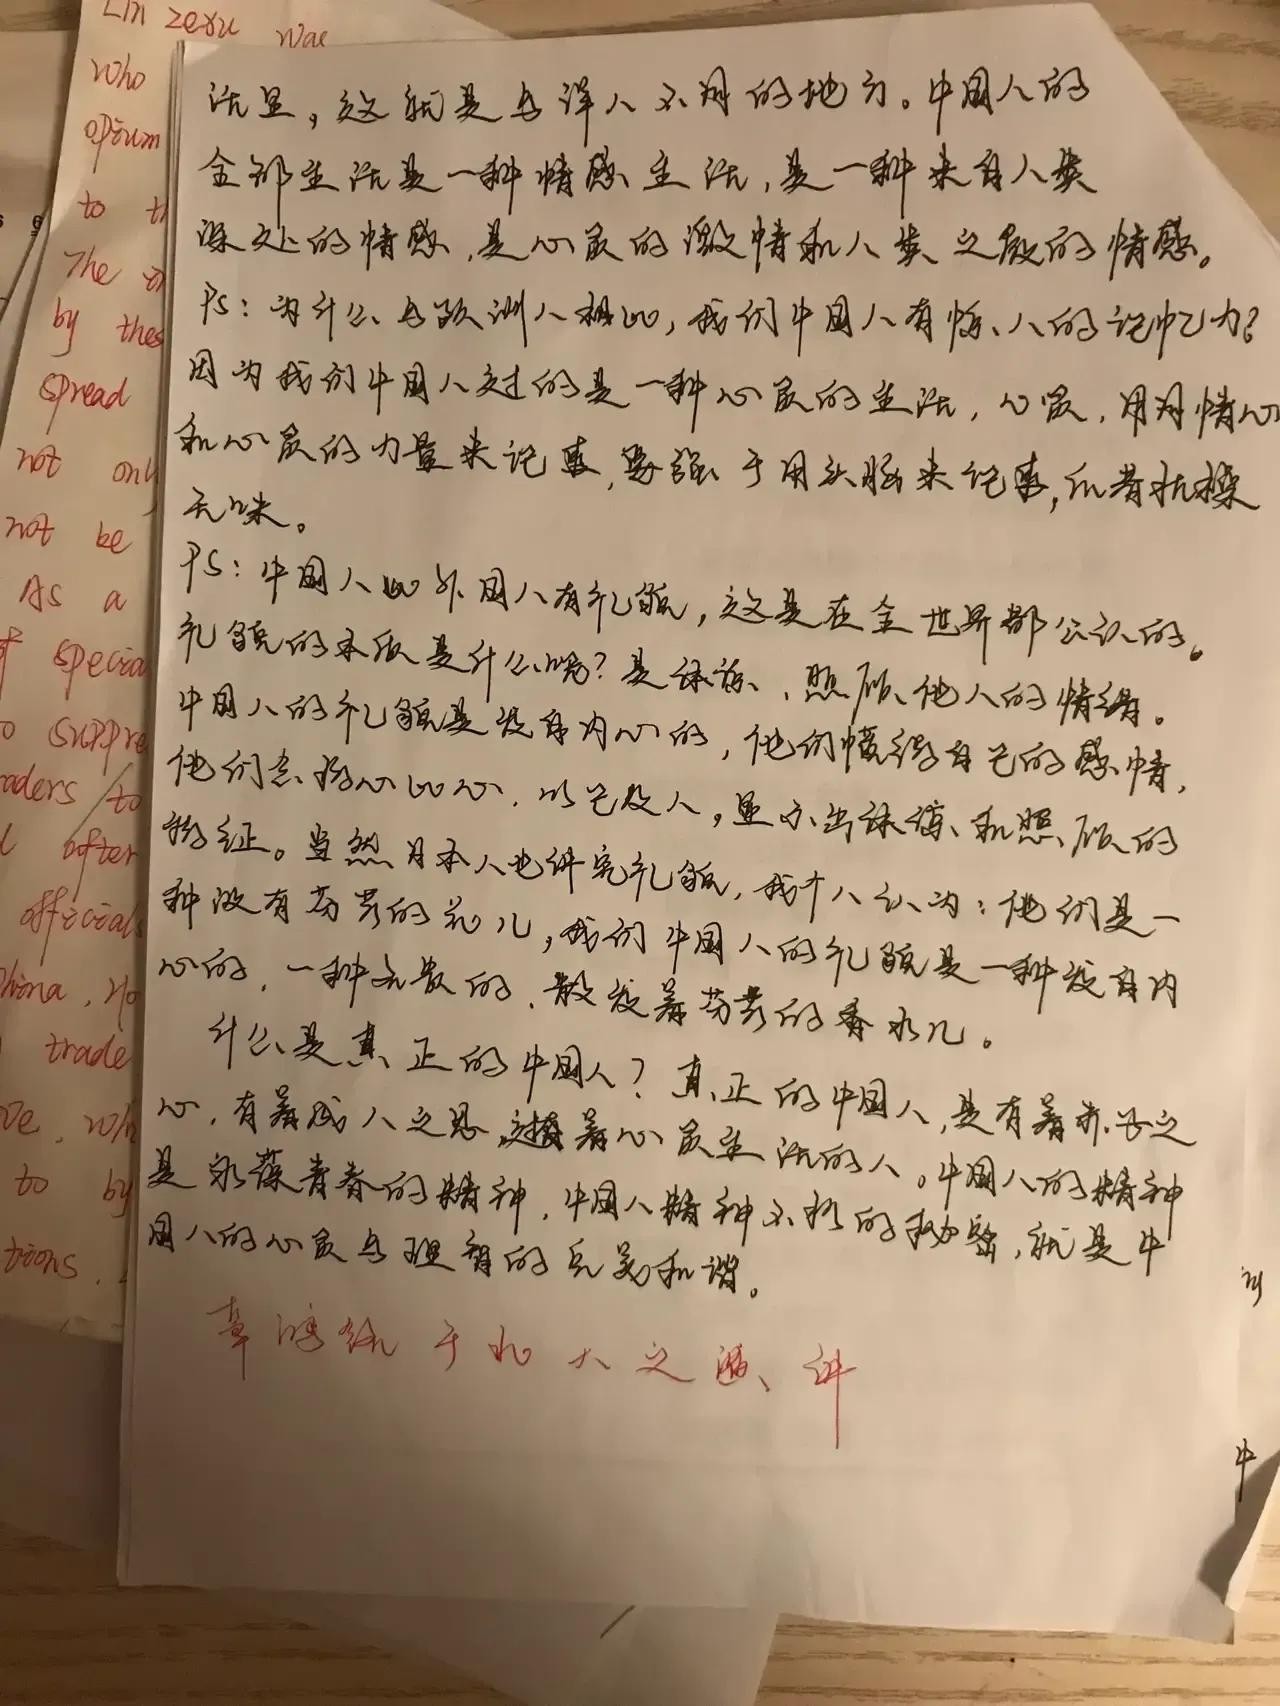 Lin zexu was
who
opium
to th
The
by thes
spread
not only
not be
As a
of specia
to suppre
raders to
after
officials
China, No
trade
ve, wi
to by
tions.
活里，这就是与洋人不同的地方。中国人的
全部生活是一种情感生活，是一种来自人类
深处的情感，是心灵的激情和人类之爱的情感。
PS：为什么与欧洲人相比，我们中国人有惊人的记忆力？
因为我们中国人过的是一种心灵的生活，心灵，用同情心
和心灵的力量来记事，要强于用头脑来记事，后者枯燥
无味。
PS：中国人比外国人有礼貌，这是在全世界都公认的。
礼貌的本质是什么呢？是体谅、照顾他人的情绪。
中国人的礼貌是发自内心的，他们懂得自己的感情，
他们会将心比心，以己及人，显示出体谅和照顾的
特征。当然日本人也讲究礼貌，我个人认为：他们是一
种没有芬芳的花儿，我们中国人的礼貌是一种发自内
心的，一种名贵的，散发着芬芳的香水儿。
什么是真正的中国人？真正的中国人，是有着赤子之
心，有着成人之思，过着心灵生活的人。中国人的精神
是永葆青春的精神，中国人精神不朽的秘密，就是中
国人的心灵与理智的完美和谐。
辜鸿铭于北大之演讲
中